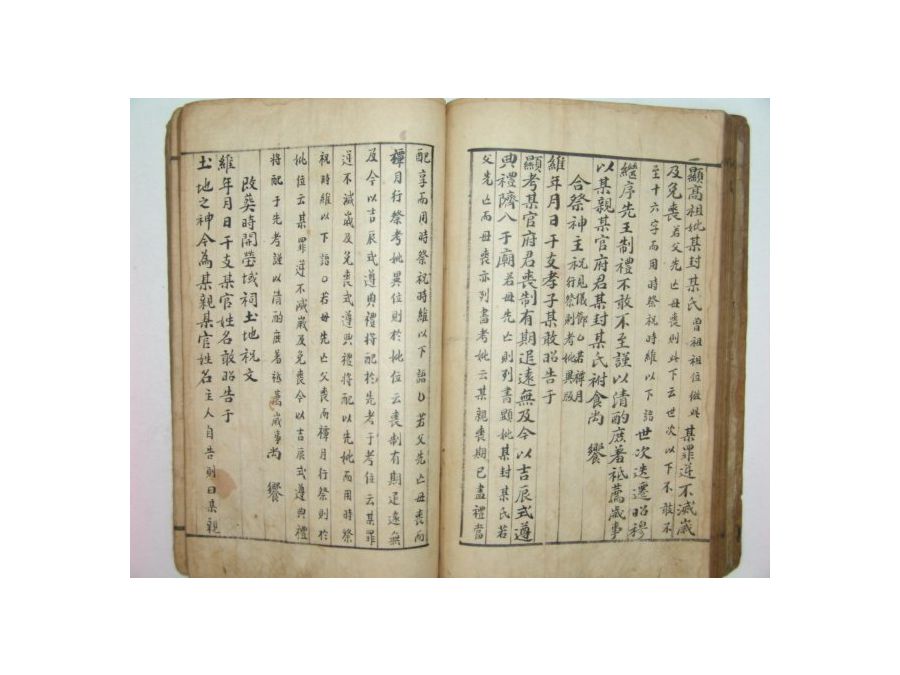 顯高祖妣某封某氏 曾祖祖位倣此 某罪逆不滅歲
及免喪 若父先亡母喪則此下云世次以下不敢不
至十六字而用時祭祝時維以下語 世次迭遷昭穆
繼序先王制禮不敢不至謹以清酌庶羞祗薦歲事
以某親某官府君某封某氏祔食尚 饗
合祭神主祝 見儀節 若禫月行祭則考妣異版
維年月日干支孝子某敢昭告于
顯考某官府君喪制有期追遠無及今以吉辰式遵
典禮隮入于廟 若母先亡則列書顯妣某封某氏若
父先亡而母喪亦列書考妣云某親喪期已盡禮當
配享而用時祭祝時維以下語 若父先亡母喪而
禫月行祭考妣異位則於妣位云喪制有期追遠無
及今以吉辰式遵典禮將配於先考于考位云某罪
逆不滅歲及免喪式遵典禮將配以先妣而用時祭
祝時維以下語 若母先亡父喪而禫月行祭則於
妣位云某罪逆不滅歲及免喪今以吉辰式遵典禮
將配于先考謹以清酌庶羞祗薦歲事尚 饗
改葬時開塋域祠土地祝文
維年月日干支某官姓名敢昭告于
土地之神今為某親某官姓名 主人自告則曰某親